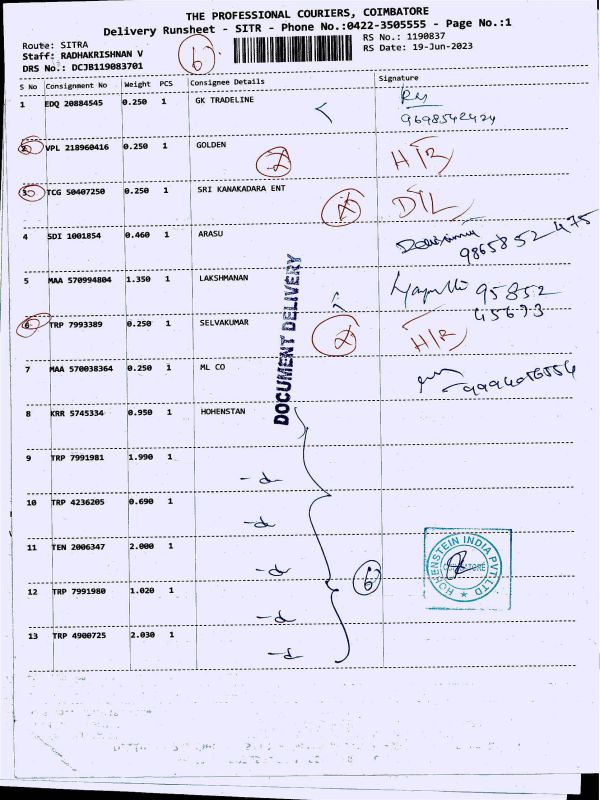 THE PROFESSIONAL COURIERS, COIMBATORE
Delivery Runsheet - SITR - Phone No.:0422-3505555 - Page No.:1
Route: SITRA
RS No.: 1190837
Staff: RADHAKRISHNAN V
RS Date: 19-Jun-2023
DRS No.: DCJB119083701
6
S No Consignment No Weight PCS Consignee Details Signature
1 EDQ 20884545 0.250 1 GK TRADELINE
9698542424
2 VPL 218960416 0.250 1 GOLDEN
3 TCG 50407250 0.250 1 SRI KANAKADARA ENT
D/L
4 SDI 1001854 0.460 1 ARASU
9865852475
5 MAA 570994804 1.350 1 LAKSHMANAN
95852
45693
6 TRP 7993389 0.250 1 SELVAKUMAR
7 MAA 570038364 0.250 1 ML CO
8 KRR 5745334 0.950 1 HOHENSTAN
9 TRP 7991981 1.990 1
10 TRP 4236205 0.690 1
11 TEN 2006347 2.000 1
12 TRP 7991980 1.020 1
13 TRP 4900725 2.030 1
6
DOCUMENT DELIVERY
HOHENSTEIN INDIA PVT. LTD